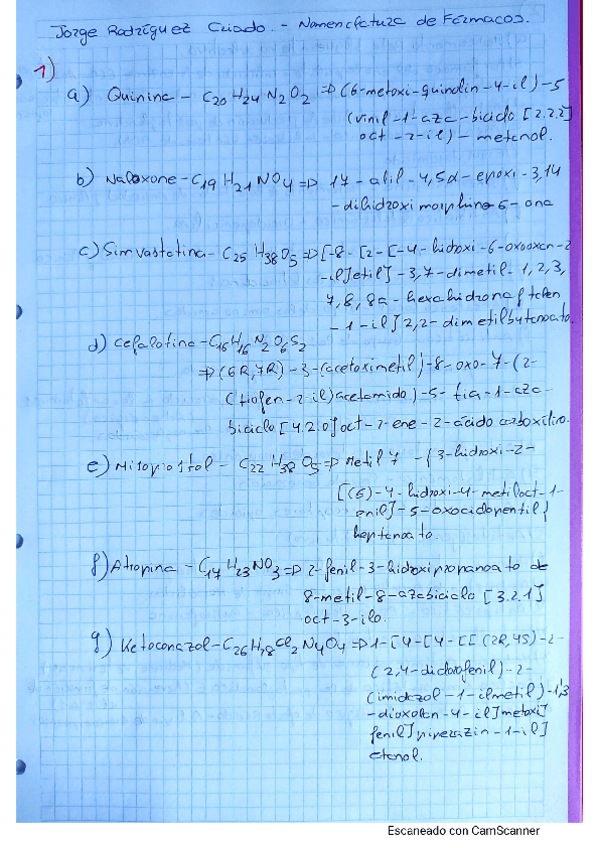 Jorge Rodríguez Criado. - Nomenclatura de Fármacos.
1)
a) Quinina - C20 H24 N2 O2 => (6-metoxi-quinolin-4-il)-5
(vinil-1-aza-biciclo [2.2.2]
oct-2-il) - metanol.
b) Naloxone - C19 H21 NO4 => 17-alil-4,5α-epoxi-3,14
-dihidroximorphine-6-ona
c) Simvastatina - C25 H38 O5 => [-8-[2-[-4-hidroxi-6-oxooxan-2
-il]etil]-3,7-dimetil-1,2,3,
7,8,8a-hexahidronaftalen
-1-il] 2,2-dimetilbutanoato.
d) Cefalotina - C16 H16 N2 O6 S2
=> (6R,7R)-3-(acetoximetil)-8-oxo-7-(2-
(tiofen-2-il)acetamido)-5-tia-1-aza-
biciclo [4.2.0]oct-2-ene-2-ácido carboxílico.
e) Misoprostol - C22 H38 O5 => Metil 7-{3-hidroxi-2-
[(6)-4-hidroxi-4-metiloct-1-
enil]-5-oxociclopentil}
heptanoato.
f) Atropina - C17 H23 NO3 => 2-fenil-3-hidroxipropanoato de
8-metil-8-azabiciclo [3.2.1]
oct-3-ilo.
g) Ketoconazol - C26 H28 Cl2 N4 O4 => 1-[4-[4-[[(2R,4S)-2-
(2,4-diclorofenil)-2-
(imidazol-1-ilmetil)-1,3
-dioxolan-4-il]metoxi]
fenil]piperazin-1-il]
etanol.
Escaneado con CamScanner